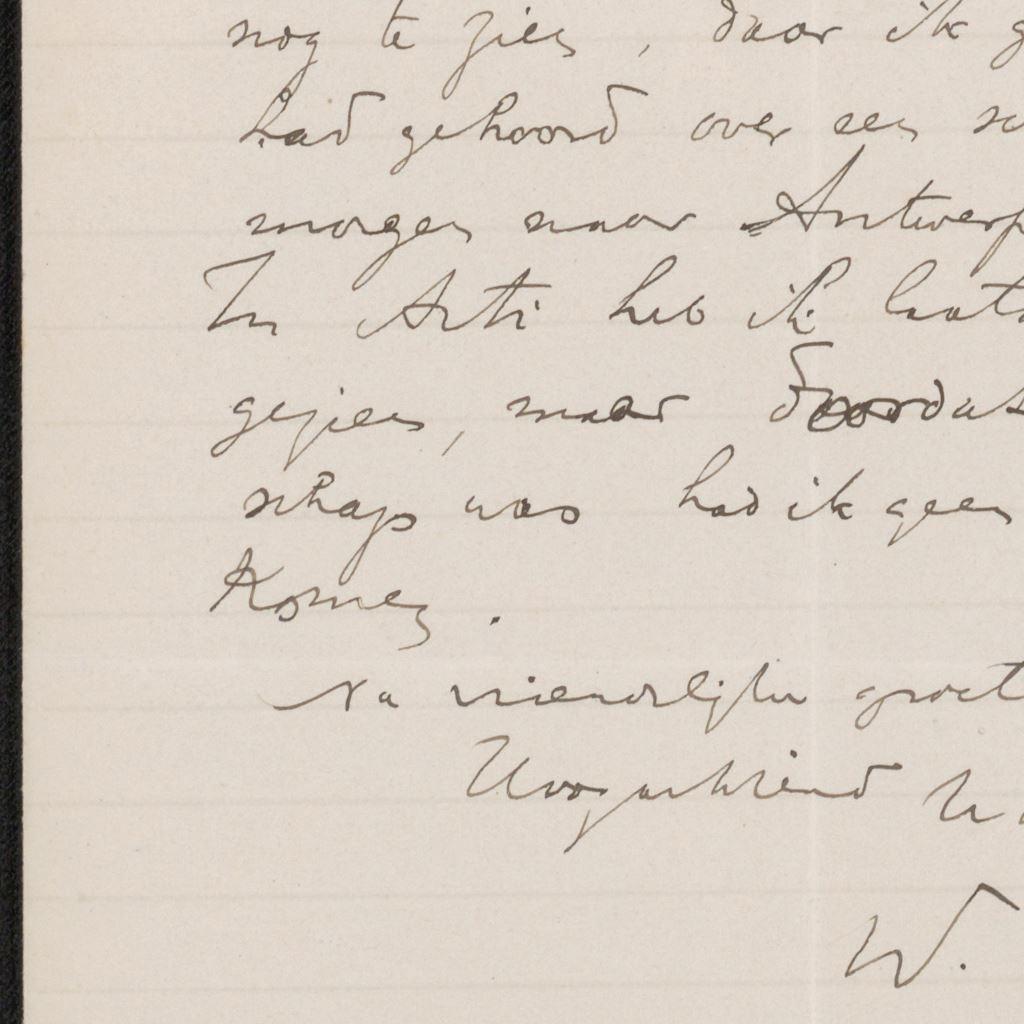 nog te zien, daar ik g
had gehoord over een sc
morgen naar Antwerp
In Arti heb ik laats
gezien, maar doordat
schap was had ik geen
komen.
Na vriendelijke groet
W.